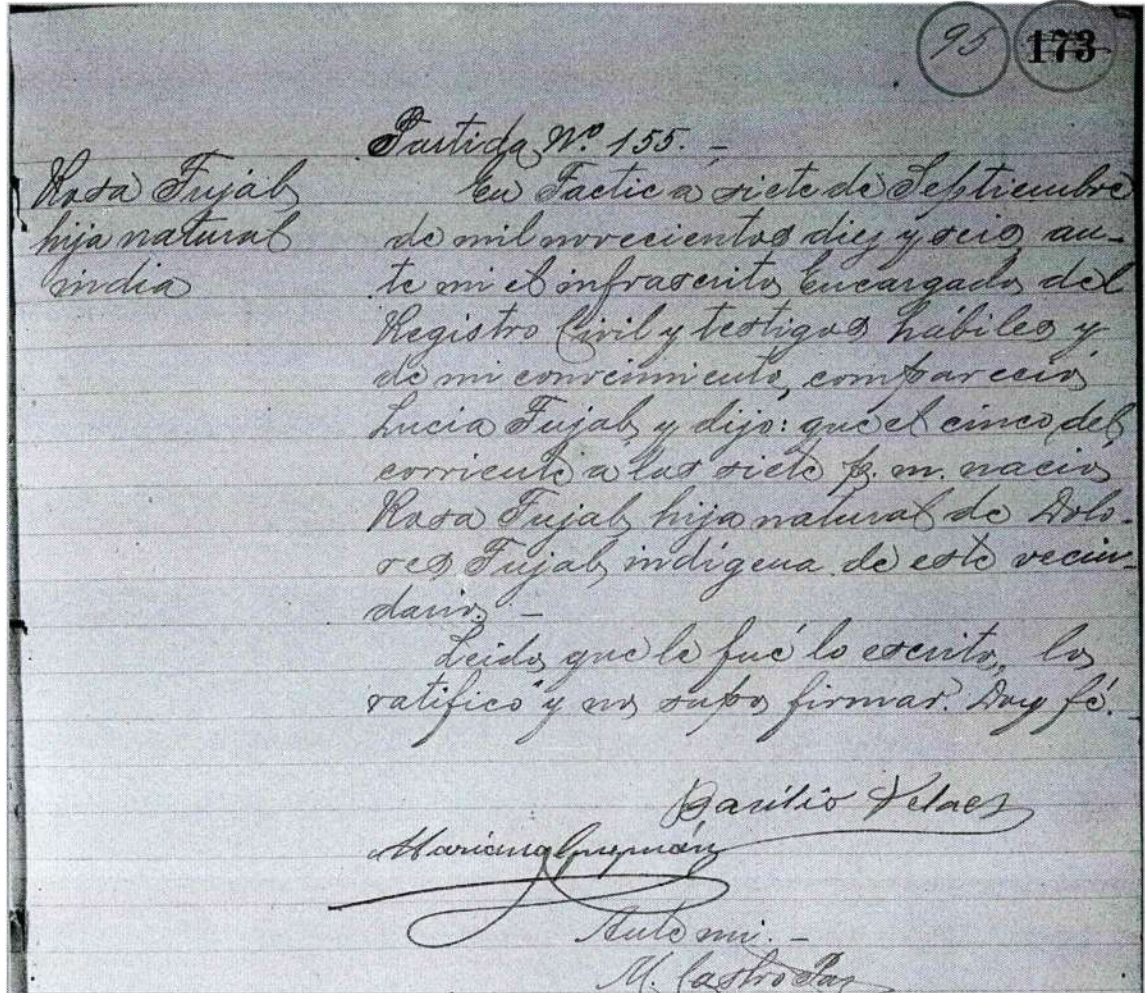 95 173
Partida Nº 155. –
Rosa Tujab
hija natural
india
En Tactic á siete de Septiembre
de mil novecientos diez y seis, an-
te mi el infrascrito Encargado del
Registro Civil y testigos hábiles y
de mi conocimiento, compareció
Lucia Tujab y dijo: que el cinco del
corriente a las siete p. m. nació
Rosa Tujab, hija natural de Dolo-
res Tujab, indígena de este vecin-
dario. –
Leido que le fué lo escrito, lo
ratificó y no supo firmar. Doy fé. –
Basilio Velaez
Mariano Guzmán
Ante mi. –
M. Castro Paz